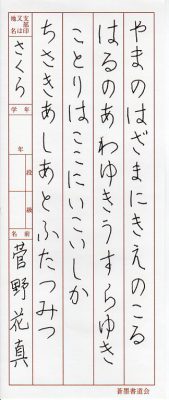 やまのはざまにきえのこる
はるのあわゆきうすらゆき
ことりはここにいこいしか
ちさきあしあとふたつみつ
支部印又は地名
さくら
学年
年
段
級
名前
菅野花真
蒼墨書道会